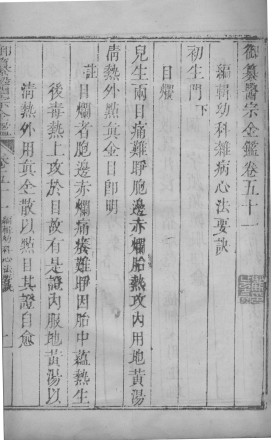 御纂醫宗金鑑卷五十一
編輯幼科雜病心法要訣
初生門下
目爛
兒生兩目痛難睜胞邊赤爛胎熱攻內用地黃湯
清熱外點真金目即明
註目爛者胞邊赤爛痛癢難睜因胎中蘊熱生
後毒熱上攻於目故有是證內服地黃湯以
清熱外用真金散以點目其證自愈